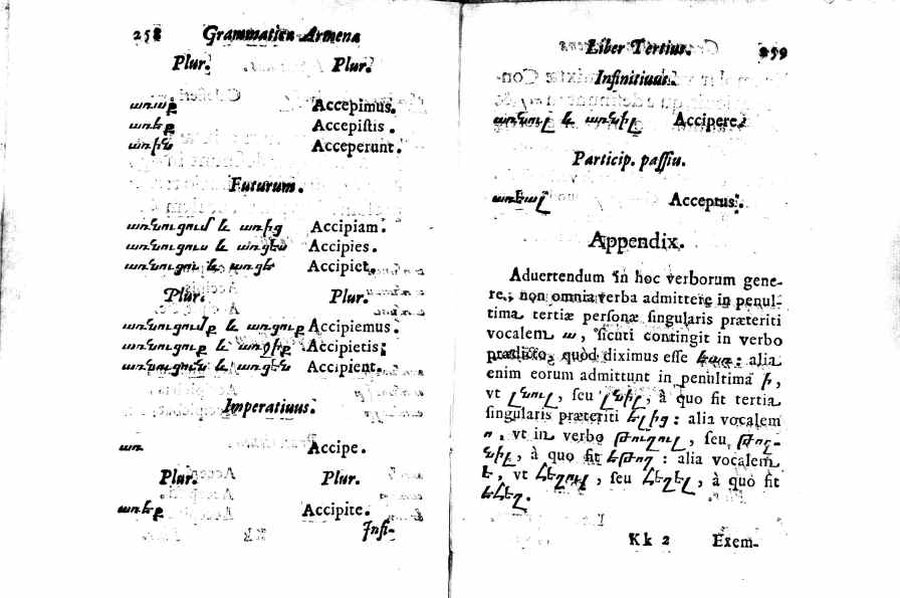 258 Grammatica Armena
Plur. Plur.
առաք Accepimus.
առեք Accepistis.
առին Acceperunt.
Futurum.
առնուցում և առից Accipiam.
առնուցուս և առցես Accipies.
առնուցու և առցե Accipiet.
Plur. Plur.
առնուցումք և առցուք Accipiemus.
առնուցուք և առջիք Accipietis;
առնուցուն և առցեն Accipient.
Imperatiuus.
առ Accipe.
Plur. Plur.
առեք Accipite.
Infi-
Liber Tertius. 259
Infinitiuus.
առնուլ և առնիլ Accipere.
Particip. passiu.
առեալ Acceptus.
Appendix.
Aduertendum in hoc verborum gene-
re, non omnia verba admittere in penul-
tima tertiæ personæ singularis præteriti
vocalem ա, sicuti contingit in verbo
quòd diximus esse էառ: alia
enim eorum admittunt in penultima ի,
vt լնուլ, seu լնիլ, à quo fit tertia
singularis præteriti ելից: alia vocalem
ո, vt in verbo թուղուլ, seu թոշ-
նիլ, à quo fit եթող: alia vocalem
ե, vt հեղուլ, seu հեղել, à quo fit
եհեղ.
Kk 2 Exem-